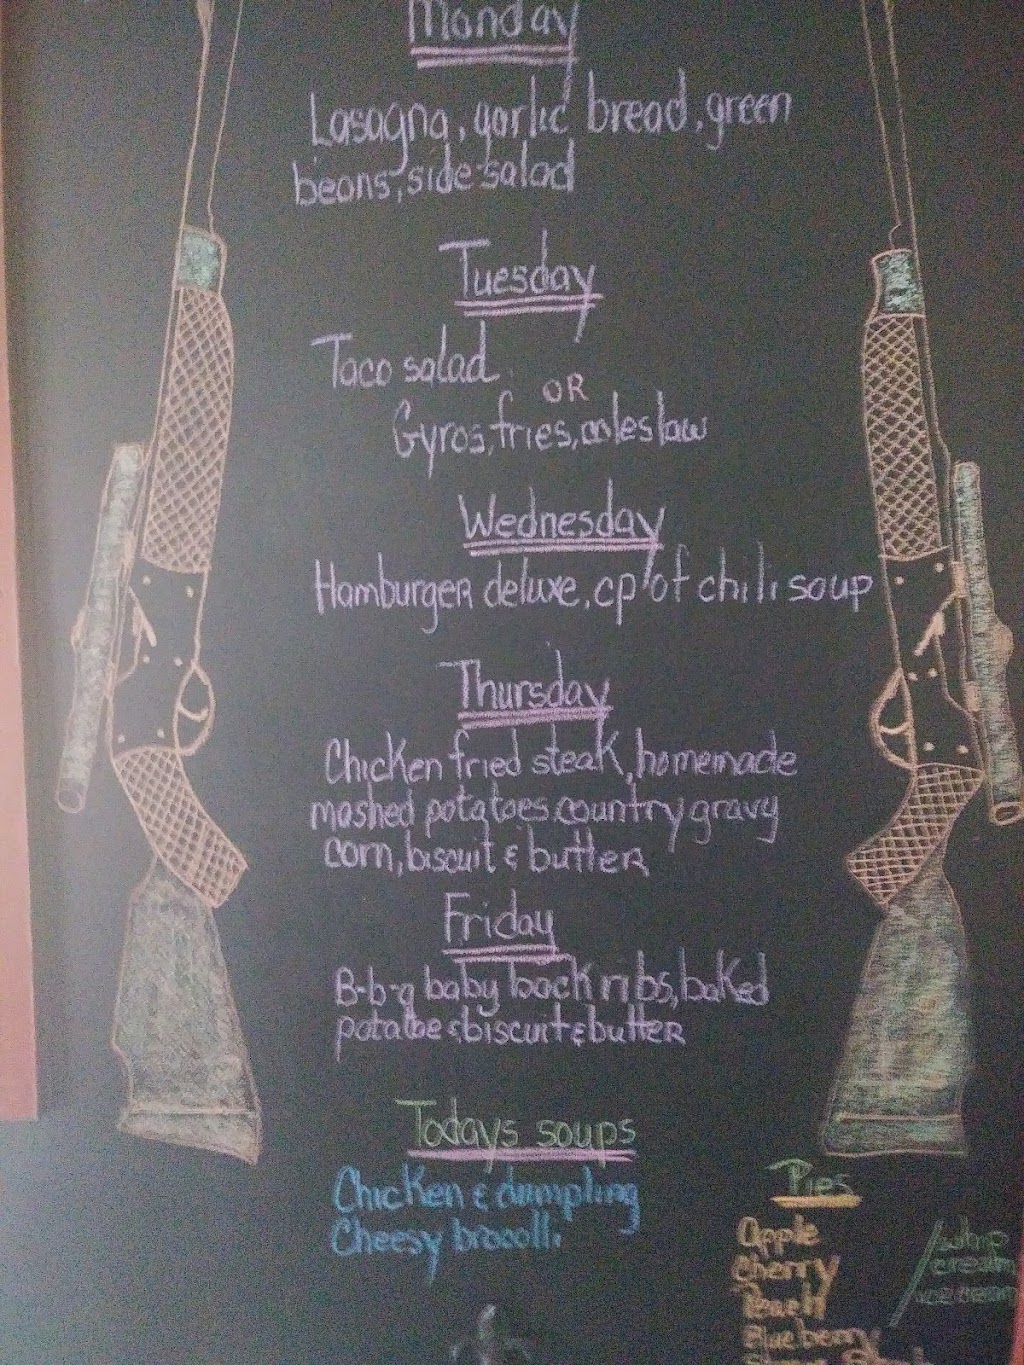 Monday
Lasagna, garlic bread, green
beans, side salad
Tuesday
Taco salad
OR
Gyros, fries, coleslaw
Wednesday
Hamburger deluxe, cp of chili soup
Thursday
Chicken fried steak, homemade
mashed potatoes, country gravy
corn, biscuit & butter
Friday
B-b-q baby back ribs, baked
potatoe & biscuit & butter
Todays soups
Chicken & dumpling
Cheesy broccolli
Pies
Apple
Cherry
Peach
Blueberry
whip
cream
ice cream